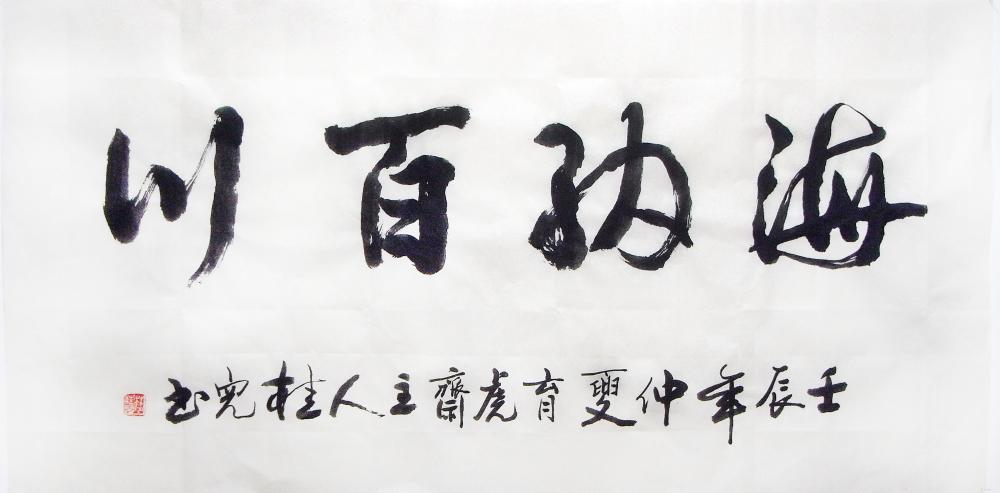 海纳百川
壬辰年仲夏育虎齋主人桂完书